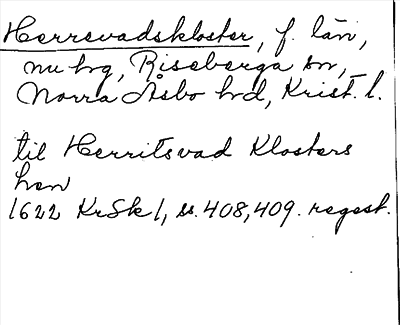 Herrevadskloster, f. län,
nu hg, Riseberga sn,
Norra Åsbo hd, Krist. l.
til Herritsvad Klosters
hen
1622 KrSk 1, s. 408, 409. regest.